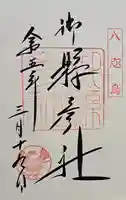 八咫烏
御縣彦社
令和五年
三月十九日